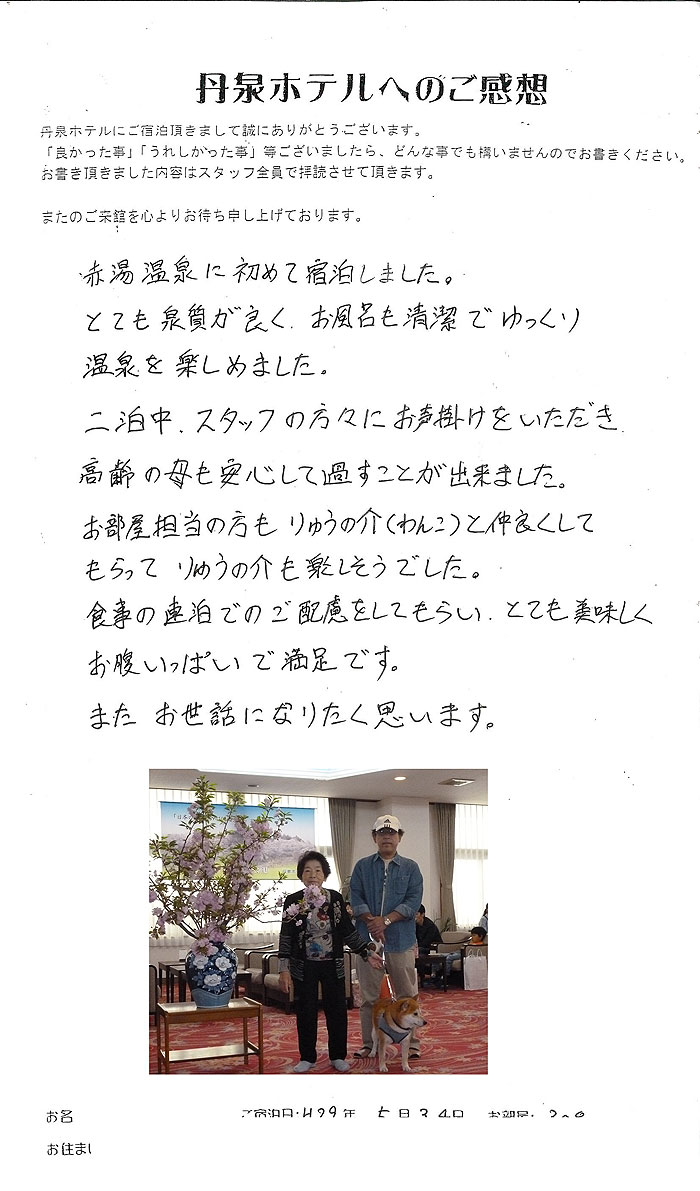 丹泉ホテルへのご感想
丹泉ホテルにご宿泊頂きまして誠にありがとうございます。
「良かった事」「うれしかった事」等ございましたら、どんな事でも構いませんのでお書きください。
お書き頂きました内容はスタッフ全員で拝読させて頂きます。
またのご来館を心よりお待ち申し上げております。
赤湯温泉に初めて宿泊しました。
とても泉質が良く、お風呂も清潔でゆっくり
温泉を楽しめました。
二泊中、スタッフの方々にお声掛けをいただき
高齢の母も安心して過すことが出来ました。
お部屋担当の方も りゅうの介(わんこ)と仲良くして
もらって りゅうの介も楽しそうでした。
食事の連泊でのご配慮をしてもらい、とても美味しく
お腹いっぱいで満足です。
また お世話になりたく思います。
お名
ご宿泊日・H29年 5月3,4日 お部屋:
お住まい